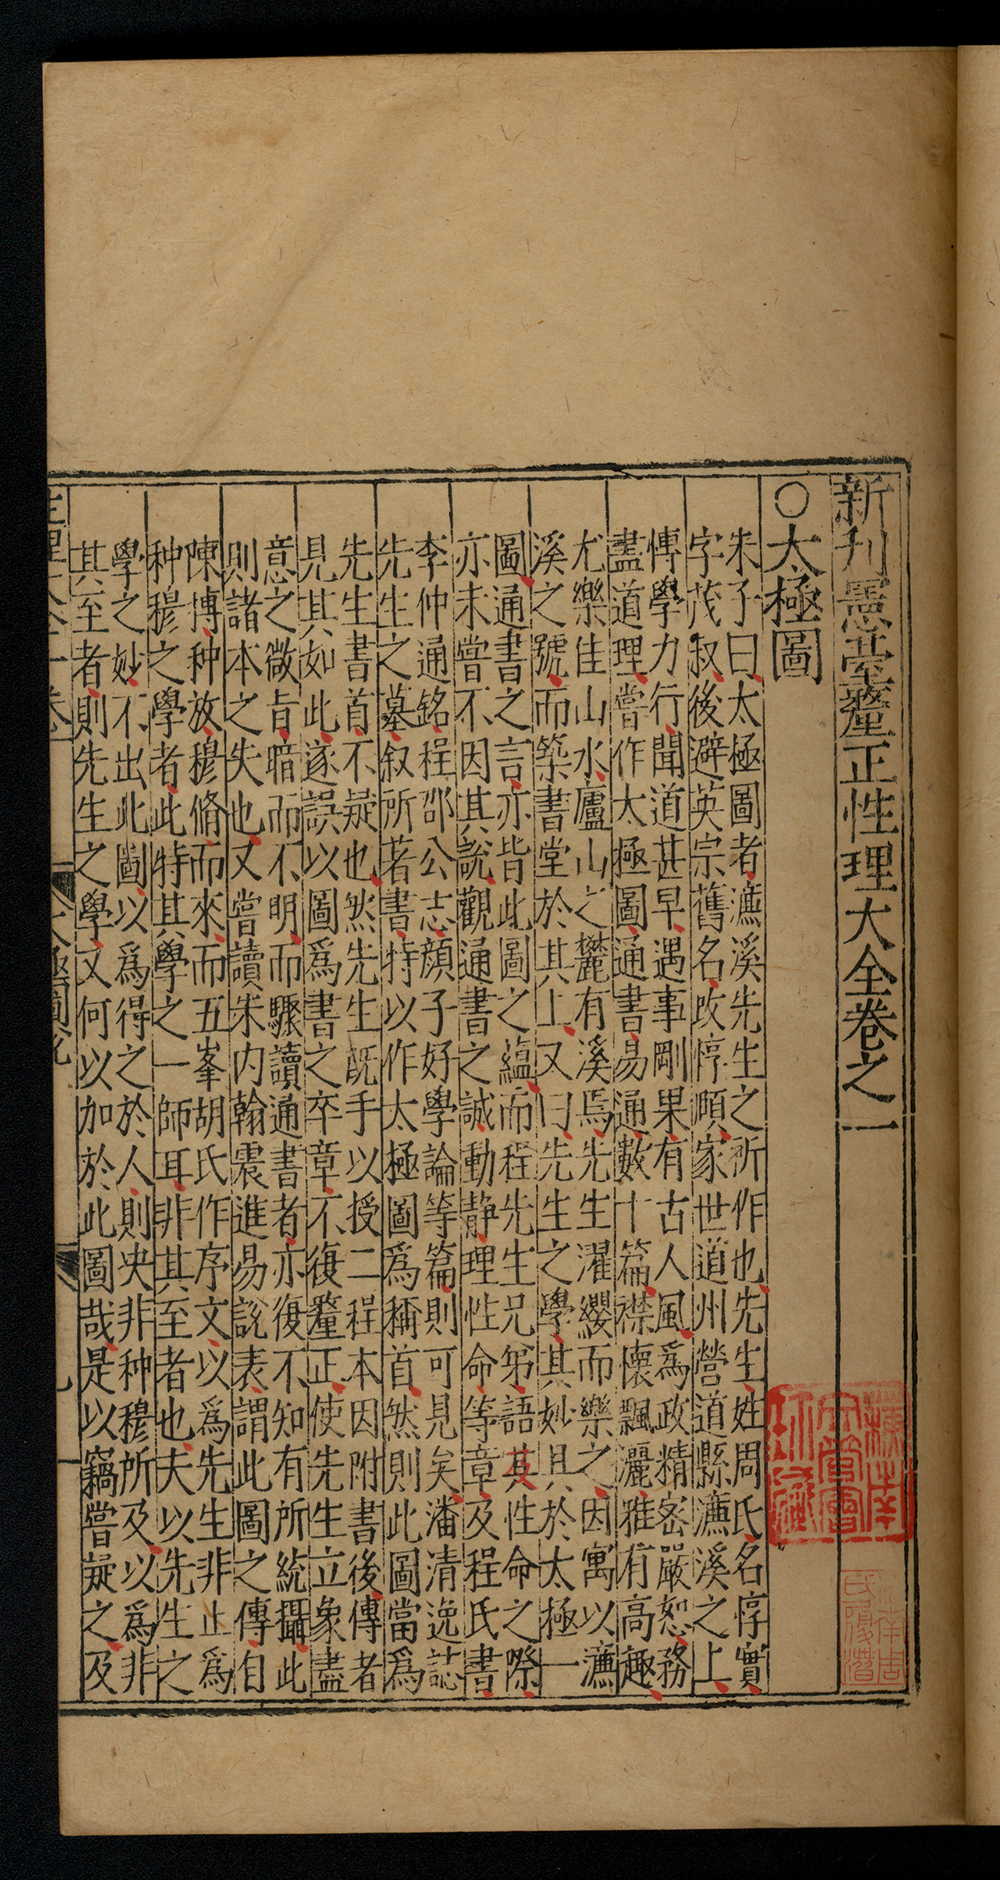 新刊憲臺釐正性理大全卷之一
○太極圖
朱子曰太極圖者濂溪先生之所作也先生姓周氏名惇實
字茂叔後避英宗舊名改惇頤家世道州營道縣濂溪之上
愽學力行聞道甚早遇事剛果有古人風爲政精密嚴恕務
盡道理嘗作太極圖通書易通數十篇襟懷飄灑雅有高趣
尤樂佳山水廬山之麓有溪焉先生濯纓而樂之因寓以濂
溪之號而築書堂於其上又曰先生之學其妙具於太極一
圖通書之言亦皆此圖之蘊而程先生兄弟語其性命之際
亦未嘗不因其說觀通書之誠動靜理性命等章及程氏書
李仲通銘程邵公志顔子好學論等篇則可見矣潘清逸誌
先生之墓叙所著書特以作太極圖爲稱首然則此圖當爲
先生書首不疑也然先生旣手以授二程本因附書後傳者
見其如此遂誤以圖爲書之卒章不復釐正使先生立象盡
意之微旨暗而不明而驟讀通書者亦復不知有所統攝此
則諸本之失也又嘗讀朱内翰震進易說表謂此圖之傳自
陳摶种放穆脩而來而五峯胡氏作序文以爲先生非止爲
种穆之學者此特其學之一師耳非其至者也夫以先生之
學之妙不出此圖以爲得之於人則决非种穆所及以爲非
其至者則先生之學又何以加於此圖哉是以竊嘗疑之及